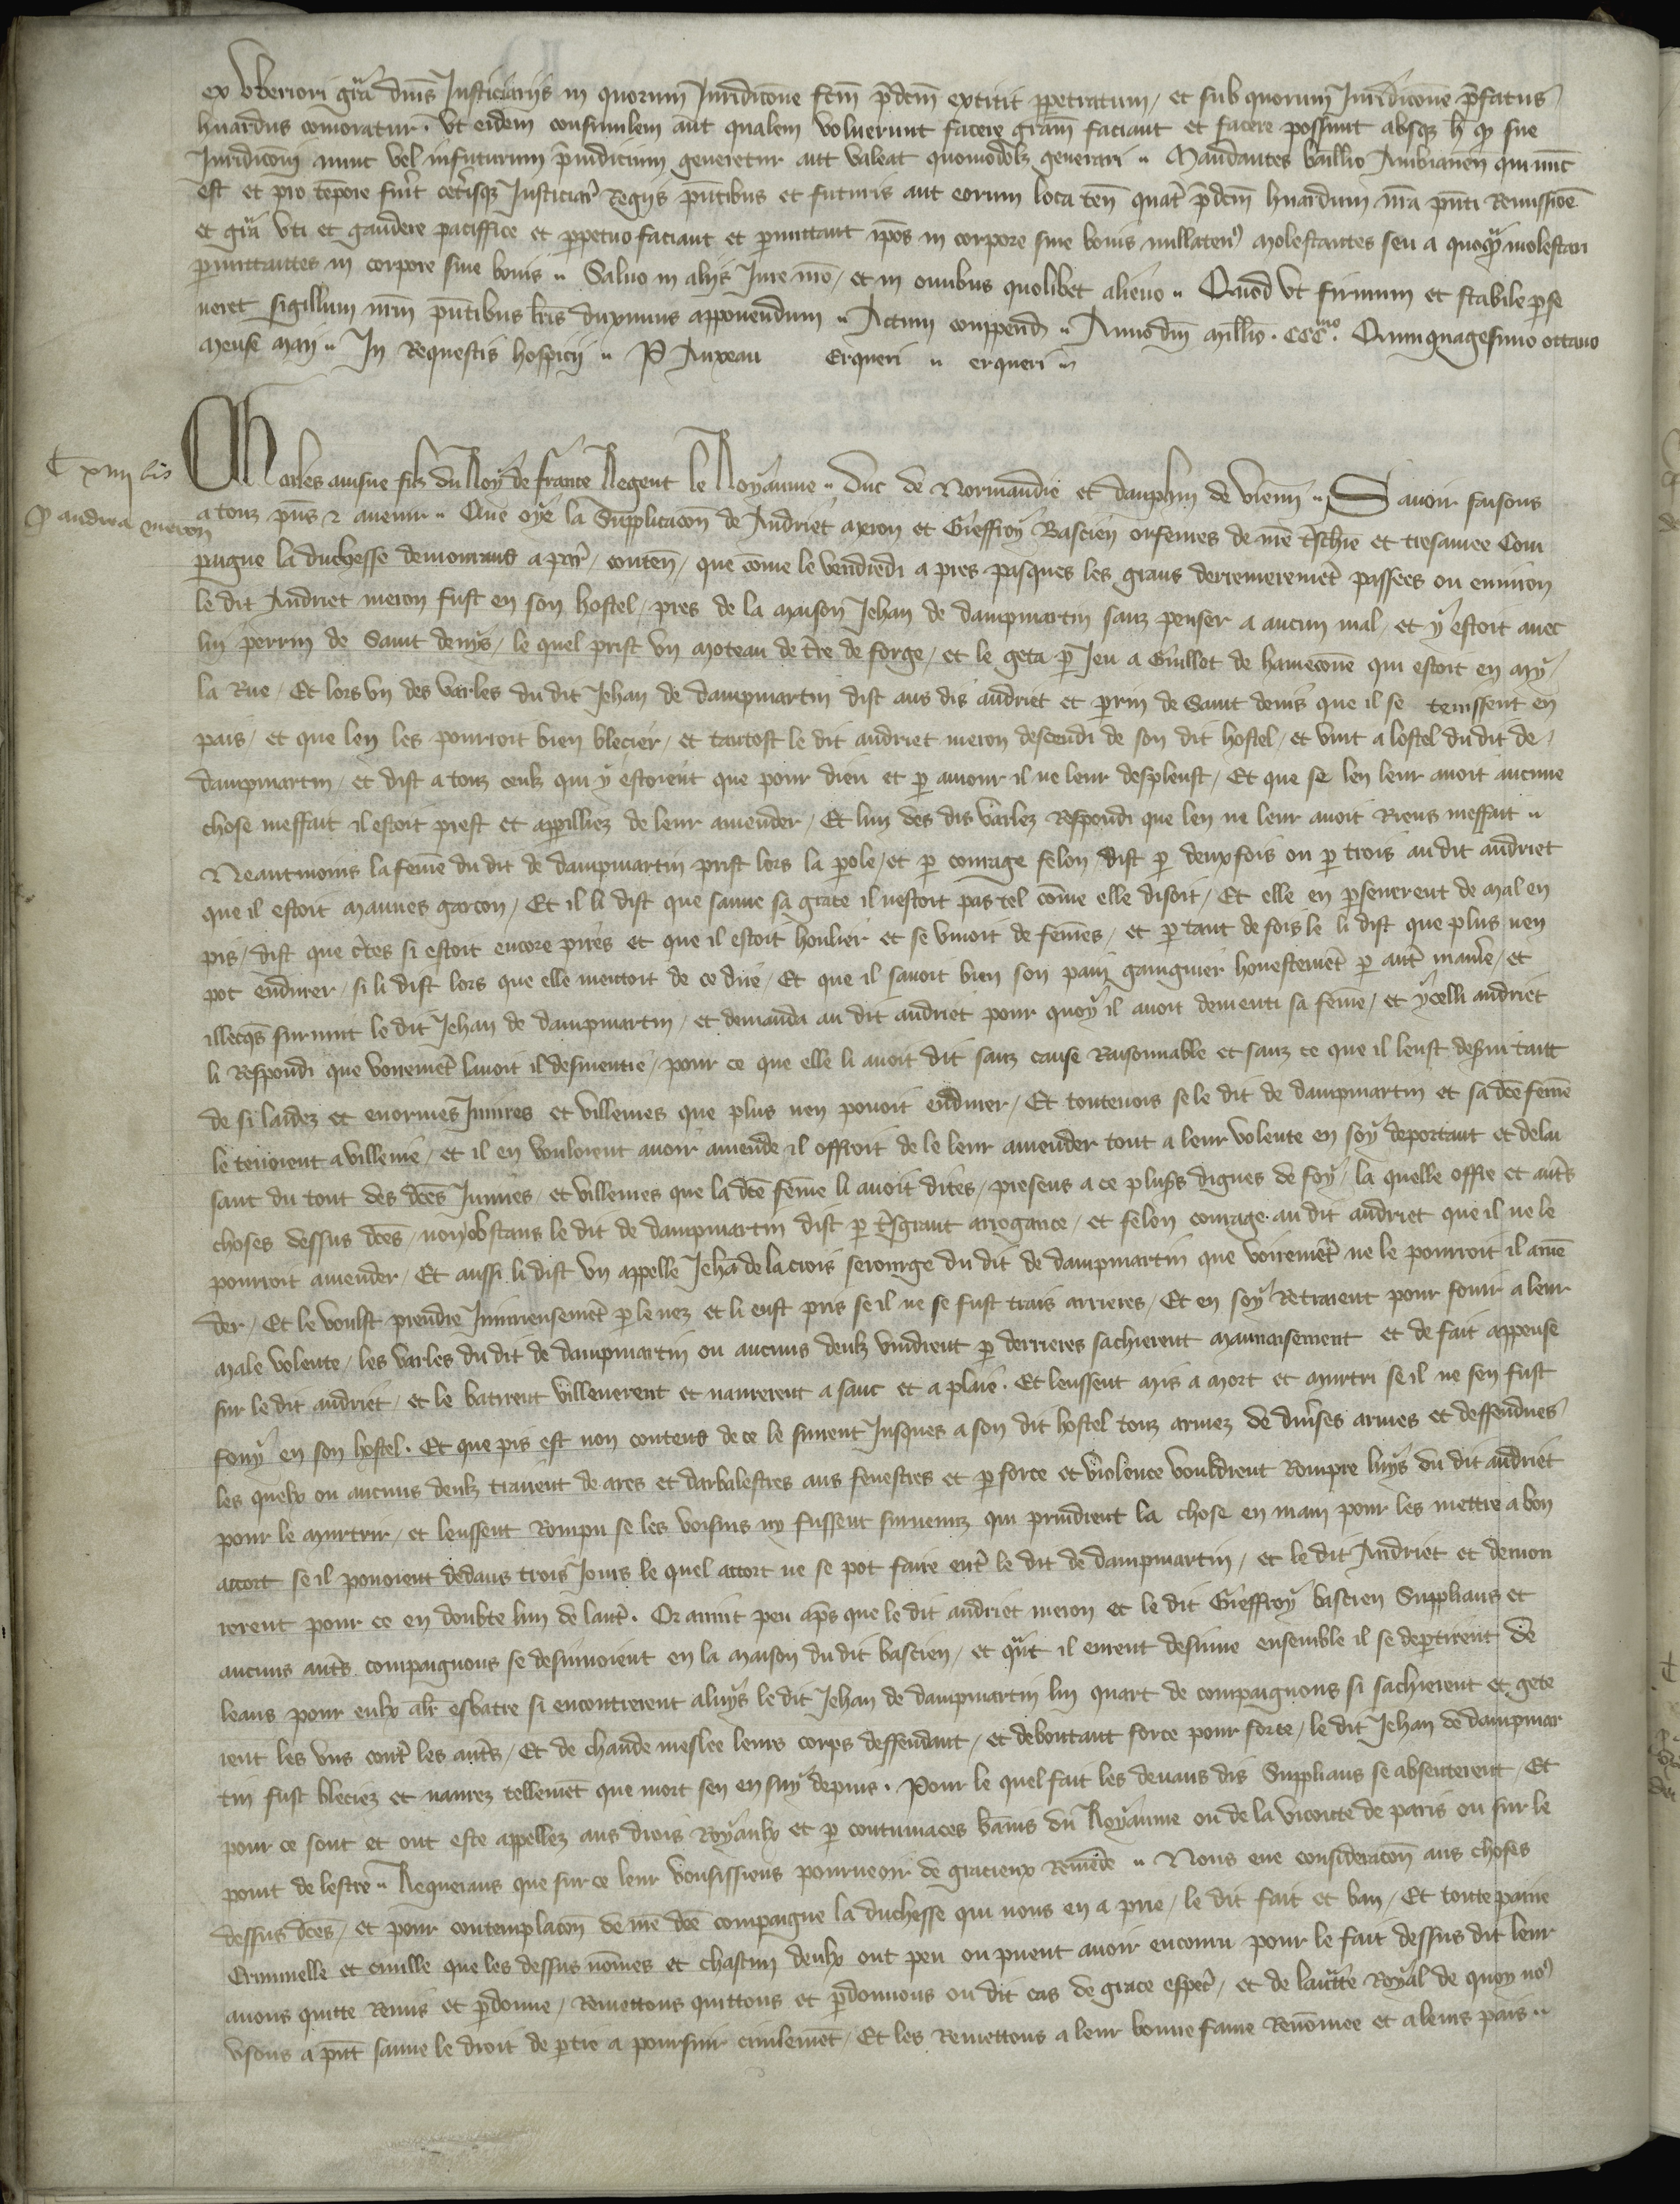 ex vberiori grã dũis Justiciariis in quorum Juridicõne fcm p̃dcm extitit ppetratum / et sub quorum Juridicõne p̃fatus
huardus comoratur . vt eidem consimilem aut qualem voluerunt facere gram̃ faciant et facere possint absq h̃ q sue
Juridicõni nunc vel infuturum p̃iudicium generetur aut valeat quomodolz generari .. Mandantes baillio Ambianeñ qui nũc
est et pro tempore fũit cet̃isq Justiciar̃ Regiis p̃ntibus et futuris aut eorum loca teñ quat̃ p̃dcm huardum nr̃a p̃nti Remissiõe
et grã vti et gaudere paciffice et perpetuo faciant et permittant ipos in corpore siue bonis nullaten9 molestantes seu a quoq molestari
permittantes in corpore siue bonis .. Saluo in aliis Jure nrõ / et in omnibus quolibet alieno .. Quod vt firmum et stabile perse
ueret sigillum nrm̃ p̃ntibus lr̃is duximus apponendum .. Actum compend̃ .. Anno dñi millio . CCCmo . Quinquagesimo octauo
mense maii .. In Requestis hospicii .. P Anxeau Erqueri .. erqueri ..
C xiiii bis
P andrea meron
Charles ainsne filz du Roy de france Regent le Royaume .. Duc de Normandie et dauphin de vienñ .. Sauoir faisons
a touz p̃ns & auenir .. Que oye la Supplicacõn de Andriet meron et Gieffroy Bascien orfeures de nr̃e t̃schiere et tresamee Com
paigne la duchesse demourans a par̃ / conteñ / que cõme le vendredi a pres pasques les grans derrenieremẽt passees ou enuiron
le dit Andriet meron fust en son hostel / pres de la maison Jehan de dampmartin sanz penser a aucun mal / et y estoit auec
lui perrin de Saint denys / le quel prist vn moteau de tr̃e de forge / et le geta p Jeu a Guillot de hameconne qui estoit en my
la Rue / Et lors vn des varles du dit Jehan de dampmartin dist aus dis andriet et perrin de Saint denis que il se tenissent en
pais / et que len les pourroit bien blecier / et tantost le dit andriet meron descendi de son dit hostel / et vint a lostel du dit de
dampmartin / et dist a touz ceulz qui y estoient que pour dieu et p amour il ne leur despleust / Et que se len leur auoit aucune
chose meffait il estoit prest et appilliez de leur amender / Et lun des dis varlez Respondi que len ne leur auoit Riens meffait ..
Neantmoins la fem̃e du dit de dampmartin prist lors la parole / et p courage felon dist p deux fois ou p trois au dit andriet
que il estoit mauues garcon / Et il li dist que sauue sa grace il nestoit pas tel cõme elle disoit / Et elle en perseuerent de mal en
pis / dist que c̃tes si estoit encore pires et que il estoit houlier et se viuoit de fem̃es / et p tant de fois le li dist que plus nen
pot endurer / si li dist lors que elle mentoit de ce dire / Et que il sauoit bien son pain gaaignier honestemẽt p aut̃ manie / et
illecq̃s suruint le dit Jehan de dampmartin / et demanda au dit andriet pour quoy il auoit dementi sa fem̃e / et ycelli andriet
li Respondi que voiremẽt lauoit il desmentie / pour ce que elle li auoit dit sanz cause Raisonnable et sanz ce que il leust desserui tant
de si laidez et enormes Iniures et villenies que plus nen pouoit endurer / Et touteuois se le dit de dampmartin et sa dcẽ fem̃e
le tenoient a villenie / et il en vouloient auoir amende il offroit de le leur amender tout a leur volente en soy deportant et delai
sant du tout des dcẽs Iniures / et villenies que la dcẽ fem̃e li auoit dites / presens a ce plus̃s dignes de foy / la quelle offre et aut̃s
choses dessus dcẽs / non obstans le dit de dampmartin dist p t̃sgrant arrogance / et felon courage au dit andriet que il ne le
pourroit amender / Et aussi li dist vn appelle Jehã de la crois serourge du dit de dampmartin que voiremẽt ne le pourroit il amẽ
der / Et le voulst prendre Iniurieusemẽt p le nez et li eust pris se il ne se fust trais arrieres / Et en soy Retraient pour fouir a leur
male volente / les varles du dit de dampmartin ou aucuns deulz vindrent p derrieres sachierent mauuaisement et de fait appense
sur le dit andriet / et le batirent villenerent et naurerent a sanc et a plaie . Et leussent mis a mort et murtri se il ne sen fust
fouy en son hostel . Et que pis est non contens de ce le suirent Jusques a son dit hostel touz armez de diũses armes et deffendues
les quelx ou aucuns deulz trairent de arcs et darbalestres aus fenestres et p force et violence vouldrent Rompre luys du dit andriet
pour le murtrir / et leussent Rompu se les voisins ny fussent suruenuz qui prindrent la chose en main pour les mettre a bon
accort se il pouoient dedans trois Jours le quel accort ne se pot faire ent̃ le dit de dampmartin / et le dit Andriet et demou
rerent pour ce en doubte lun de laut̃ . Or auint peu ap̃s que le dit andriet meron et le dit Gieffroy bascien Supplians et
aucuns aut̃s compaignons se desiunoient en la maison du dit bascien / et qũt il eurent desiune ensemble il se departirent de
leans pour eulx alr̃ esbatre si encontrerent a luys le dit Jehan de dampmartin lui quart de compaignons si sachierent et gete
rent les vns cont̃ les aut̃s / Et de chaude meslee leurs corps deffendant / et deboutant force pour force / le dit Jehan de dampmar
tin fust bleciez et naurez tellemẽt que mort sen ensuy depuis . Pour le quel fait les deuans dis Supplians se absenterent / Et
pour ce sont et ont este appellez aus drois Royaulx et p contumaces bãnis du Royaume ou de la viconte de paris ou sur le
point de lestre .. Requerans que sur ce leur vousissiens pourueoir de gracieux Remede .. Nous eue consideracõn aus choses
dessus dcẽs / et pour contemplacõn de nr̃e dcẽ compaigne la duchesse qui nous en a prie / le dit fait et ban / Et toute paine
Criminelle et ciuille que les dessus nõmes et chascun deulx ont peu ou puent auoir encouru pour le fait dessus dit leur
auons quitte Remis et pardonne / Remettons quittons et pardonnons ou dit cas de grace especĩ / et de lauct̃te Royal de quoy no9
vsons a p̃nt sauue le droit de partie a poursuir ciuilemẽt / Et les Remettons a leur bonne fame Renõmee et a leurs pais ..